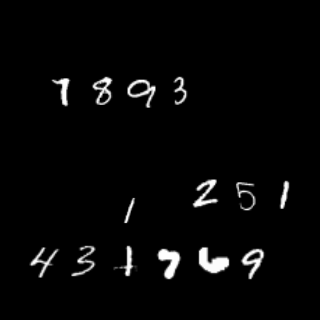 7893
1
251
431769